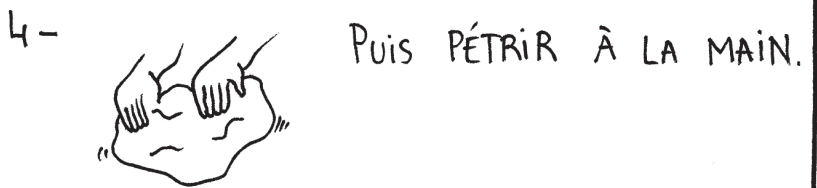 4- Puis PÉTRiR À LA MAiN.